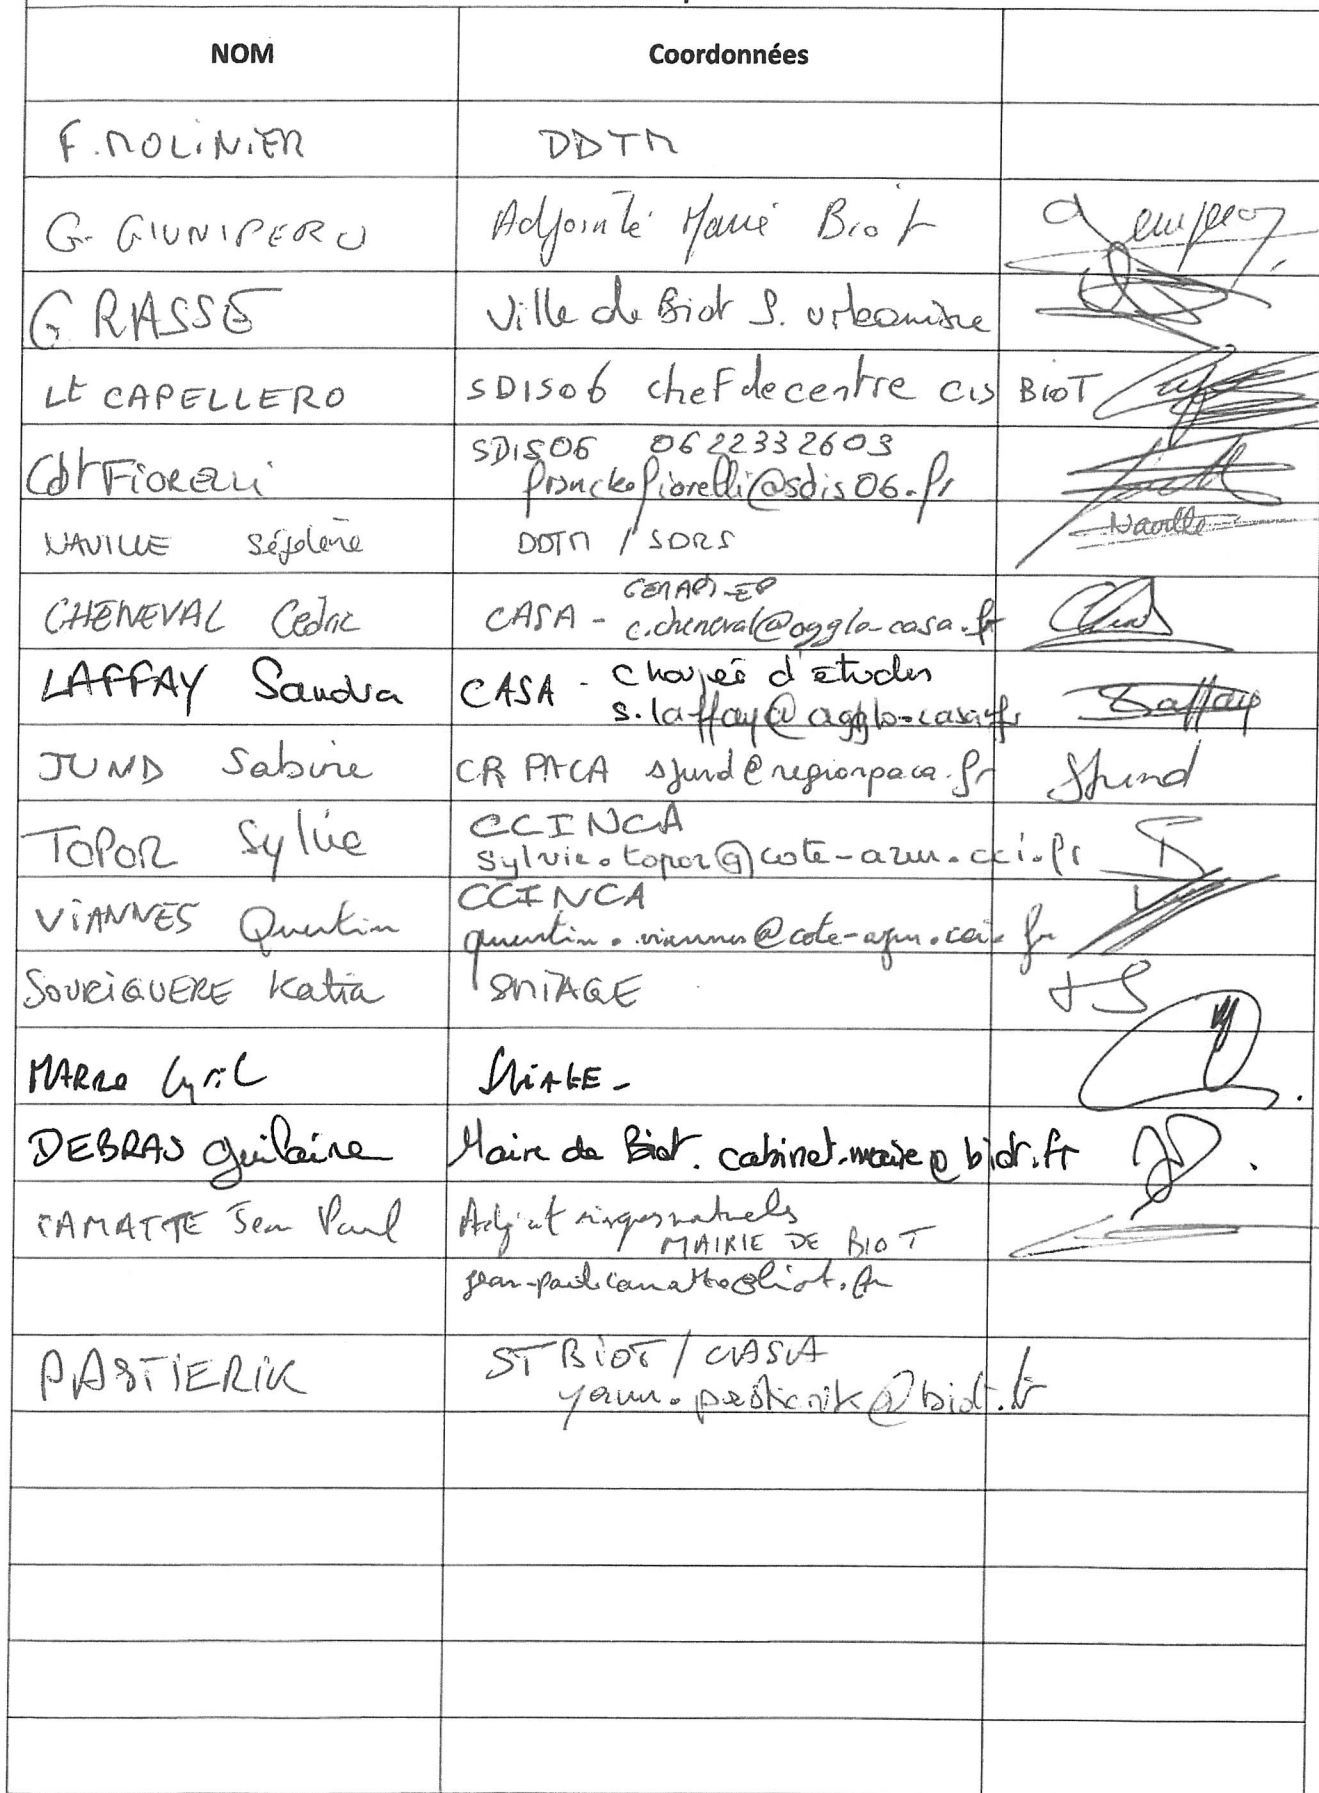 NOM Coordonnées
F. MOLINIER DDTM
G. GIUNIPERO Adjointe Mairie Biot
G RASSE Ville de Biot S. urbanisme
Lt CAPELLERO SDIS06 chef de centre CIS BIOT
Cdt FIORELLI SDIS06 0622332603
franck.fiorelli@sdis06.fr
NAVILLE Ségolène DDTM / SDRS Naville
CHENEVAL Cédric CASA - GEMAPI-EP
c.cheneval@agglo-casa.fr
LAFFAY Sandra CASA - Chargée d'études
s.laffay@agglo-casa.fr Laffay
JUND Sabine CR PACA sjund@regionpaca.fr SJund
TOPOR Sylvie CCINCA
sylvie.topor@cote-azur.cci.fr
VIANNES Quentin CCINCA
quentin.viannes@cote-azur.cci.fr
SOURIGUERE Katia SMIAGE
MARRO Cyril SMIAGE -
DEBRAS Guilaine Maire de Biot. cabinet.maire@biot.fr
CAMATTE Jean Paul Adjoint risques naturels
MAIRIE DE BIOT
jean-paul.camatte@biot.fr
PASTIERIK ST BIOT / CASA
yann.pastierik@biot.fr